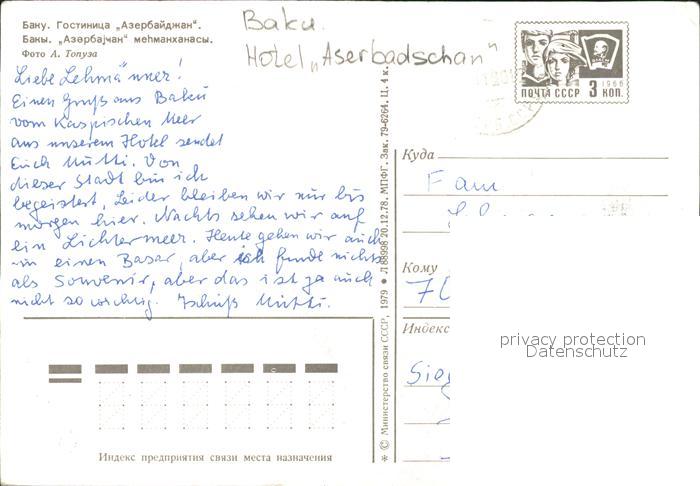 Баку. Гостиница „Азербайджан“.
Бакы. „Азәрбајҹан“ меһманханасы.
Фото А. Топуза
Baku.
Hotel „Aserbadschan“
ПОЧТА СССР 3 КОП.
1966
Liebe Lehmänner!
Einen Gruß aus Baku
vom Kaspischen Meer
aus unserem Hotel sendet
Euch Mutti. Von
dieser Stadt bin ich
begeistert, Leider bleiben wir nur bis
morgen hier. Nachts sehen wir auf
ein Lichtermeer. Heute gehen wir auch
in einen Basar, aber ich finde nichts
als Souvenir, aber das ist ja auch
nicht so wichtig. Tschüß Mutti.
✶ © Министерство связи СССР, 1979 ● Л 68998 20.12.78. МПФГ. Зак. 79-6264. Ц. 4 к.
Куда
Fam
Кому
Индекс
privacy protection
Datenschutz
Индекс предприятия связи места назначения